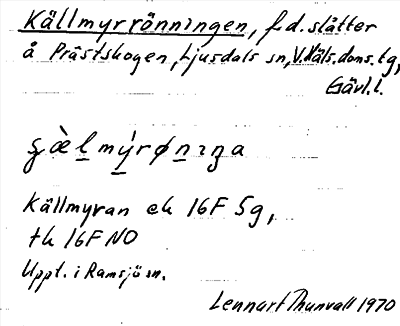 Källmyrrönningen, f.d. slåtter
å Prästskogen, Ljusdals sn, V. Häls. doms. tg,
Gävl. l.
ʒæ̀lmýrønıŋa
Källmyran ek 16F 5g,
tk 16F NO
Uppt. i Ramsjö sn.
Lennart Thunvall 1970